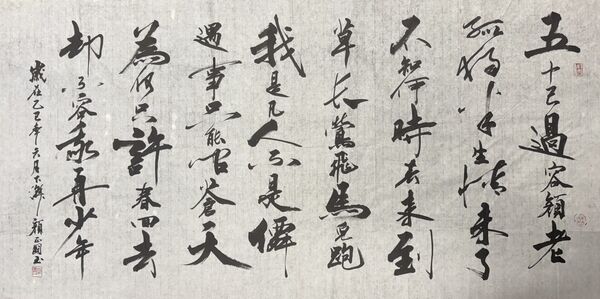 五十已過容顏老
孤獨半生情未了
不知何時來到
草長鶯飛馬兒跑
我是凡人不是僊
遇事只能問蒼天
為何只許春回去
却不容我再少年
歲在乙巳年六月下澣